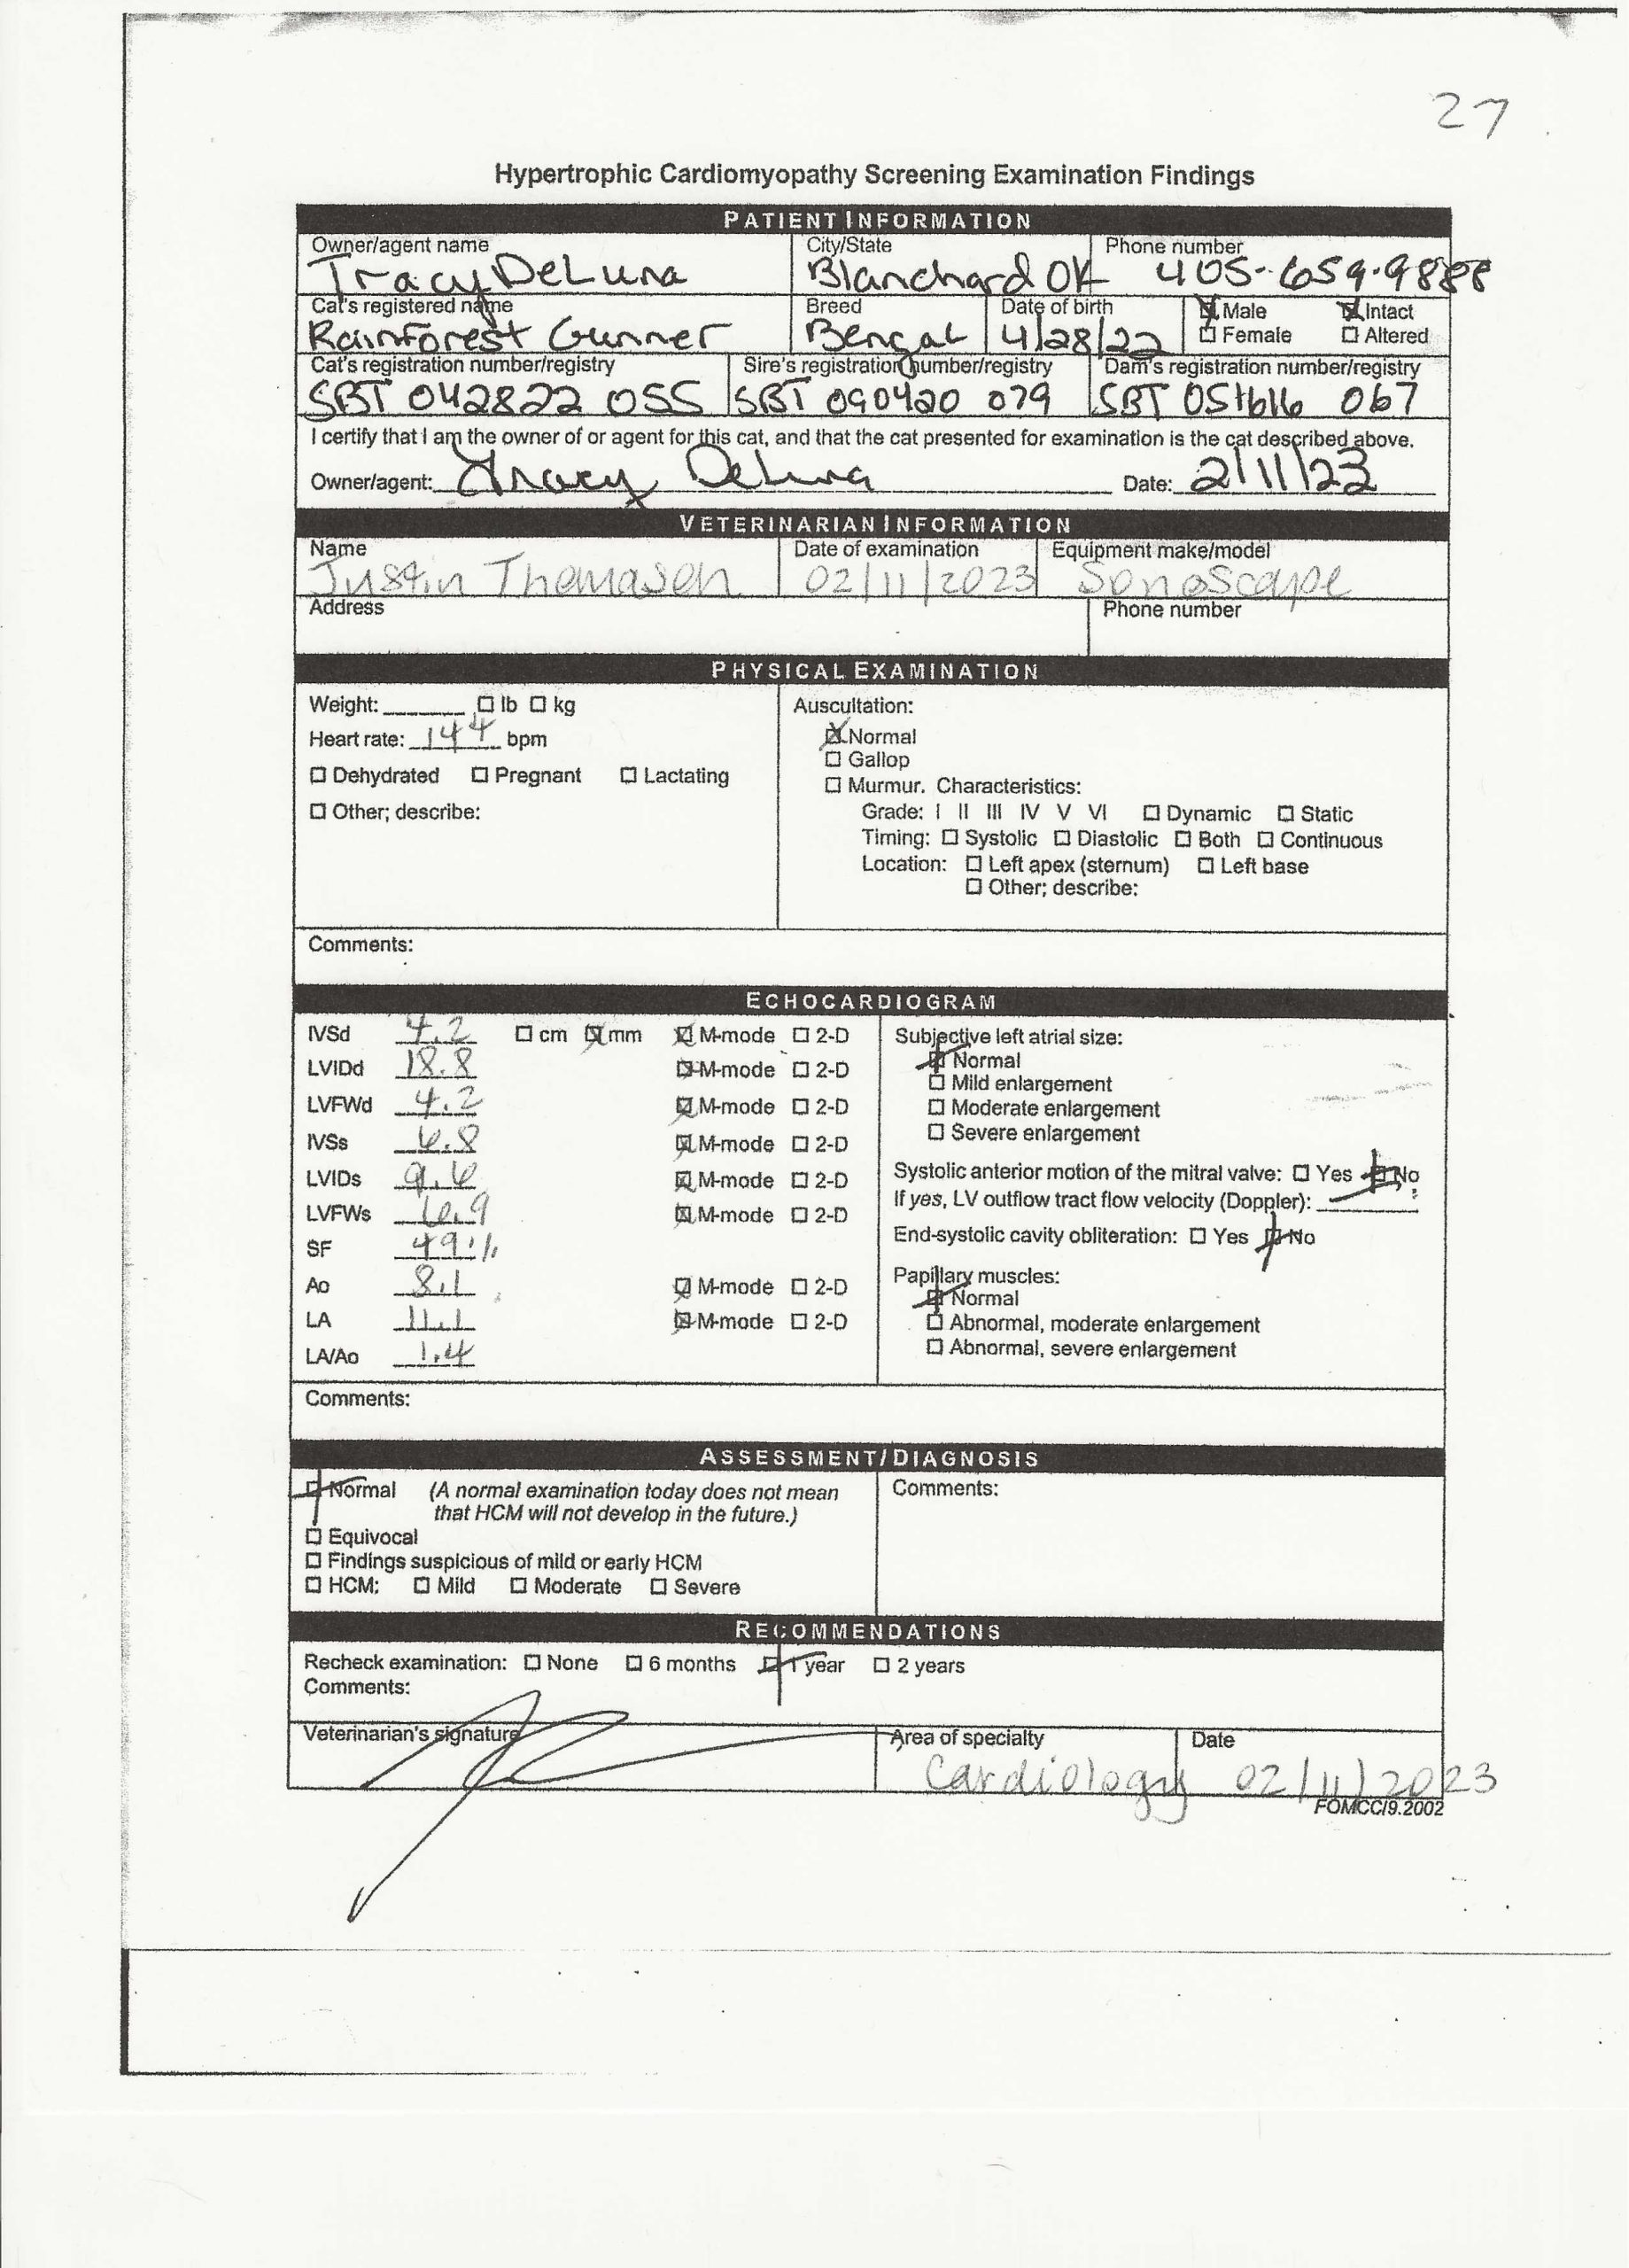 27
Hypertrophic Cardiomyopathy Screening Examination Findings
PATIENT INFORMATION
Owner/agent name City/State Phone number
Tracy DeLuna Blanchard OK 405-659-9888
Cat's registered name Breed Date of birth ☒ Male ☒ Intact
RainForest Gunner Bengal 4/28/22 ☐ Female ☐ Altered
Cat's registration number/registry Sire's registration number/registry Dam's registration number/registry
SBT 042822 055 SBT 090420 079 SBT 051616 067
I certify that I am the owner of or agent for this cat, and that the cat presented for examination is the cat described above.
Owner/agent: Tracy DeLuna Date: 2/11/23
VETERINARIAN INFORMATION
Name Date of examination Equipment make/model
Justin Thomason 02/11/2023 SonoScape
Address Phone number
PHYSICAL EXAMINATION
Weight: ______ ☐ lb ☐ kg
Heart rate: 144 bpm
☐ Dehydrated ☐ Pregnant ☐ Lactating
☐ Other; describe:
Auscultation:
☒ Normal
☐ Gallop
☐ Murmur. Characteristics:
Grade: I II III IV V VI ☐ Dynamic ☐ Static
Timing: ☐ Systolic ☐ Diastolic ☐ Both ☐ Continuous
Location: ☐ Left apex (sternum) ☐ Left base
☐ Other; describe:
Comments:
ECHOCARDIOGRAM
IVSd 4.2 ☐ cm ☒ mm ☒ M-mode ☐ 2-D
LVIDd 18.8 ☒ M-mode ☐ 2-D
LVFWd 4.2 ☒ M-mode ☐ 2-D
IVSs 6.8 ☒ M-mode ☐ 2-D
LVIDs 9.6 ☒ M-mode ☐ 2-D
LVFWs 6.9 ☒ M-mode ☐ 2-D
SF 49%
Ao 8.1 ☒ M-mode ☐ 2-D
LA 11.1 ☒ M-mode ☐ 2-D
LA/Ao 1.4
Subjective left atrial size:
☒ Normal
☐ Mild enlargement
☐ Moderate enlargement
☐ Severe enlargement
Systolic anterior motion of the mitral valve: ☐ Yes ☒ No
If yes, LV outflow tract flow velocity (Doppler): ________
End-systolic cavity obliteration: ☐ Yes ☒ No
Papillary muscles:
☒ Normal
☐ Abnormal, moderate enlargement
☐ Abnormal, severe enlargement
Comments:
ASSESSMENT/DIAGNOSIS
☒ Normal (A normal examination today does not mean
that HCM will not develop in the future.)
☐ Equivocal
☐ Findings suspicious of mild or early HCM
☐ HCM: ☐ Mild ☐ Moderate ☐ Severe
Comments:
RECOMMENDATIONS
Recheck examination: ☐ None ☐ 6 months ☒ 1 year ☐ 2 years
Comments:
Veterinarian's signature Area of specialty Date
Cardiology 02/11/2023
FOMCC/9.2002